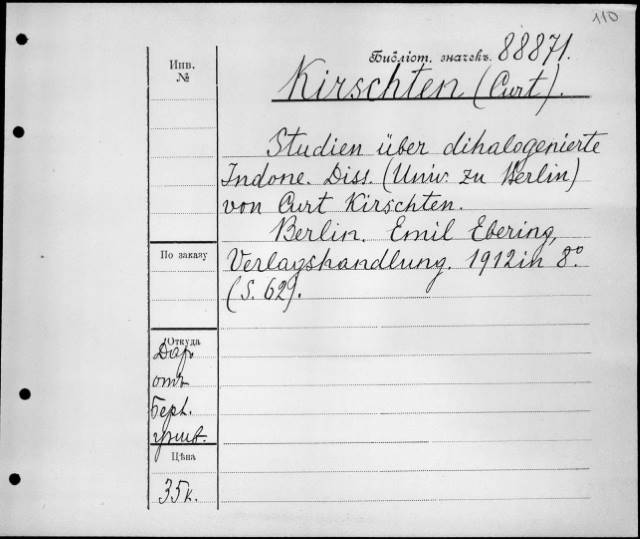 110
Инв.
№
Библіот. значекъ. 88871.
Kirschten (Curt).
Studien über dihalogenierte
Indone. Diss. (Univ. zu Berlin)
von Curt Kirschten.
Berlin. Emil Ebering,
Verlagshandlung. 1912 in 8º.
(S. 62).
По заказу
Откуда
Даръ
отъ
Берл.
унив.
Цѣна
35 к.